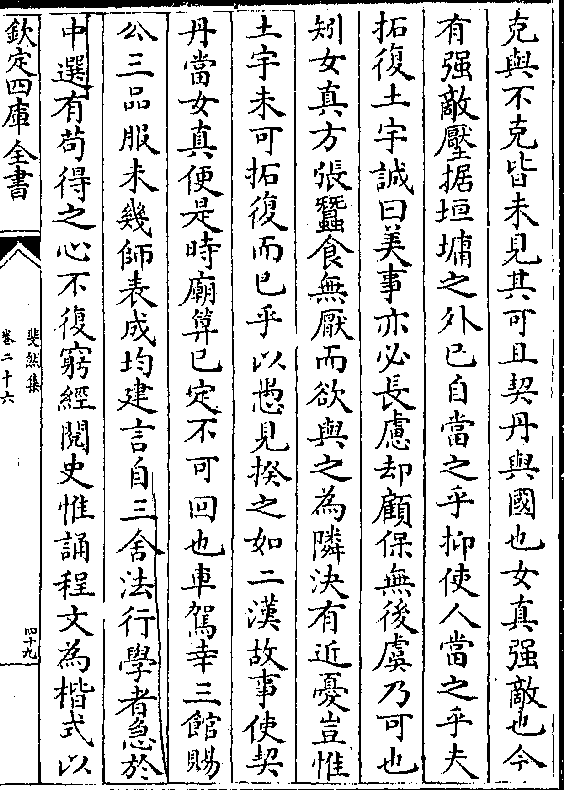 克與不克皆未見其可且契丹與國也女真强敵也今
有强敵壓据垣墉之外已自當之乎抑使人當之乎夫
拓復土宇誠曰美事亦必長慮却顧保無後虞乃可也
矧女真方張蠶食無厭而欲與之為隣決有近憂豈惟
土宇未可拓復而已乎以愚見揆之如二漢故事使契
丹當女真便是時廟算已定不可回也車駕幸三館賜
公三品服未幾師表成均建言自三舍法行學者急於
中選有苟得之心不復窮經閱史惟誦程文為楷式以
欽定四庫全書
斐然集
卷二十六
四十九